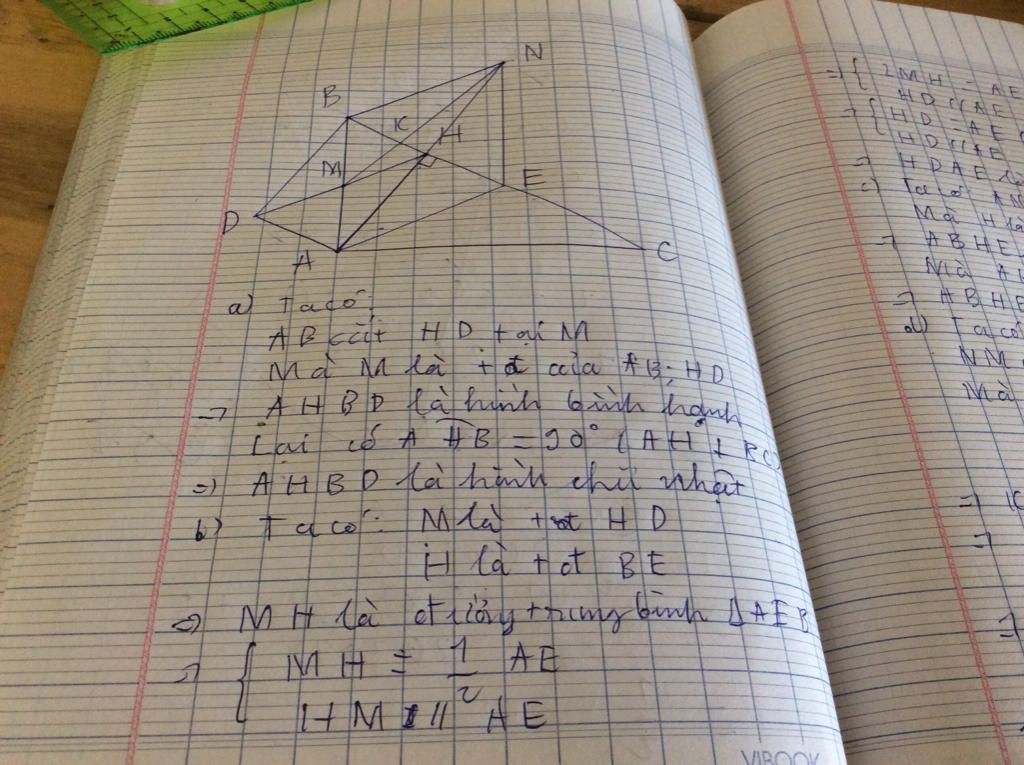 N
B
K
H
M
E
D
A
C
a) Ta có:
AB cắt HD tại M
Mà M là tđ của AB; HD
→ AHBD là hình bình hành
Lại có AHB = 90° (AH ⊥ BC)
=> AHBD là hình chữ nhật
b) Ta có: M là tđ HD
H là tđ BE
=> MH là đường trung bình ΔAEB
→ { MH = 1/2 AE
HM // AE
VIBOOK
=> { 2MH = AE
HD // AE
→ { HD = AE
HD // AE
→ HDAE là
c) Ta có AN
Mà H là
→ ABHE
Mà A
→ ABHE
d) Ta có
NM
Mà
=>
=>
=>